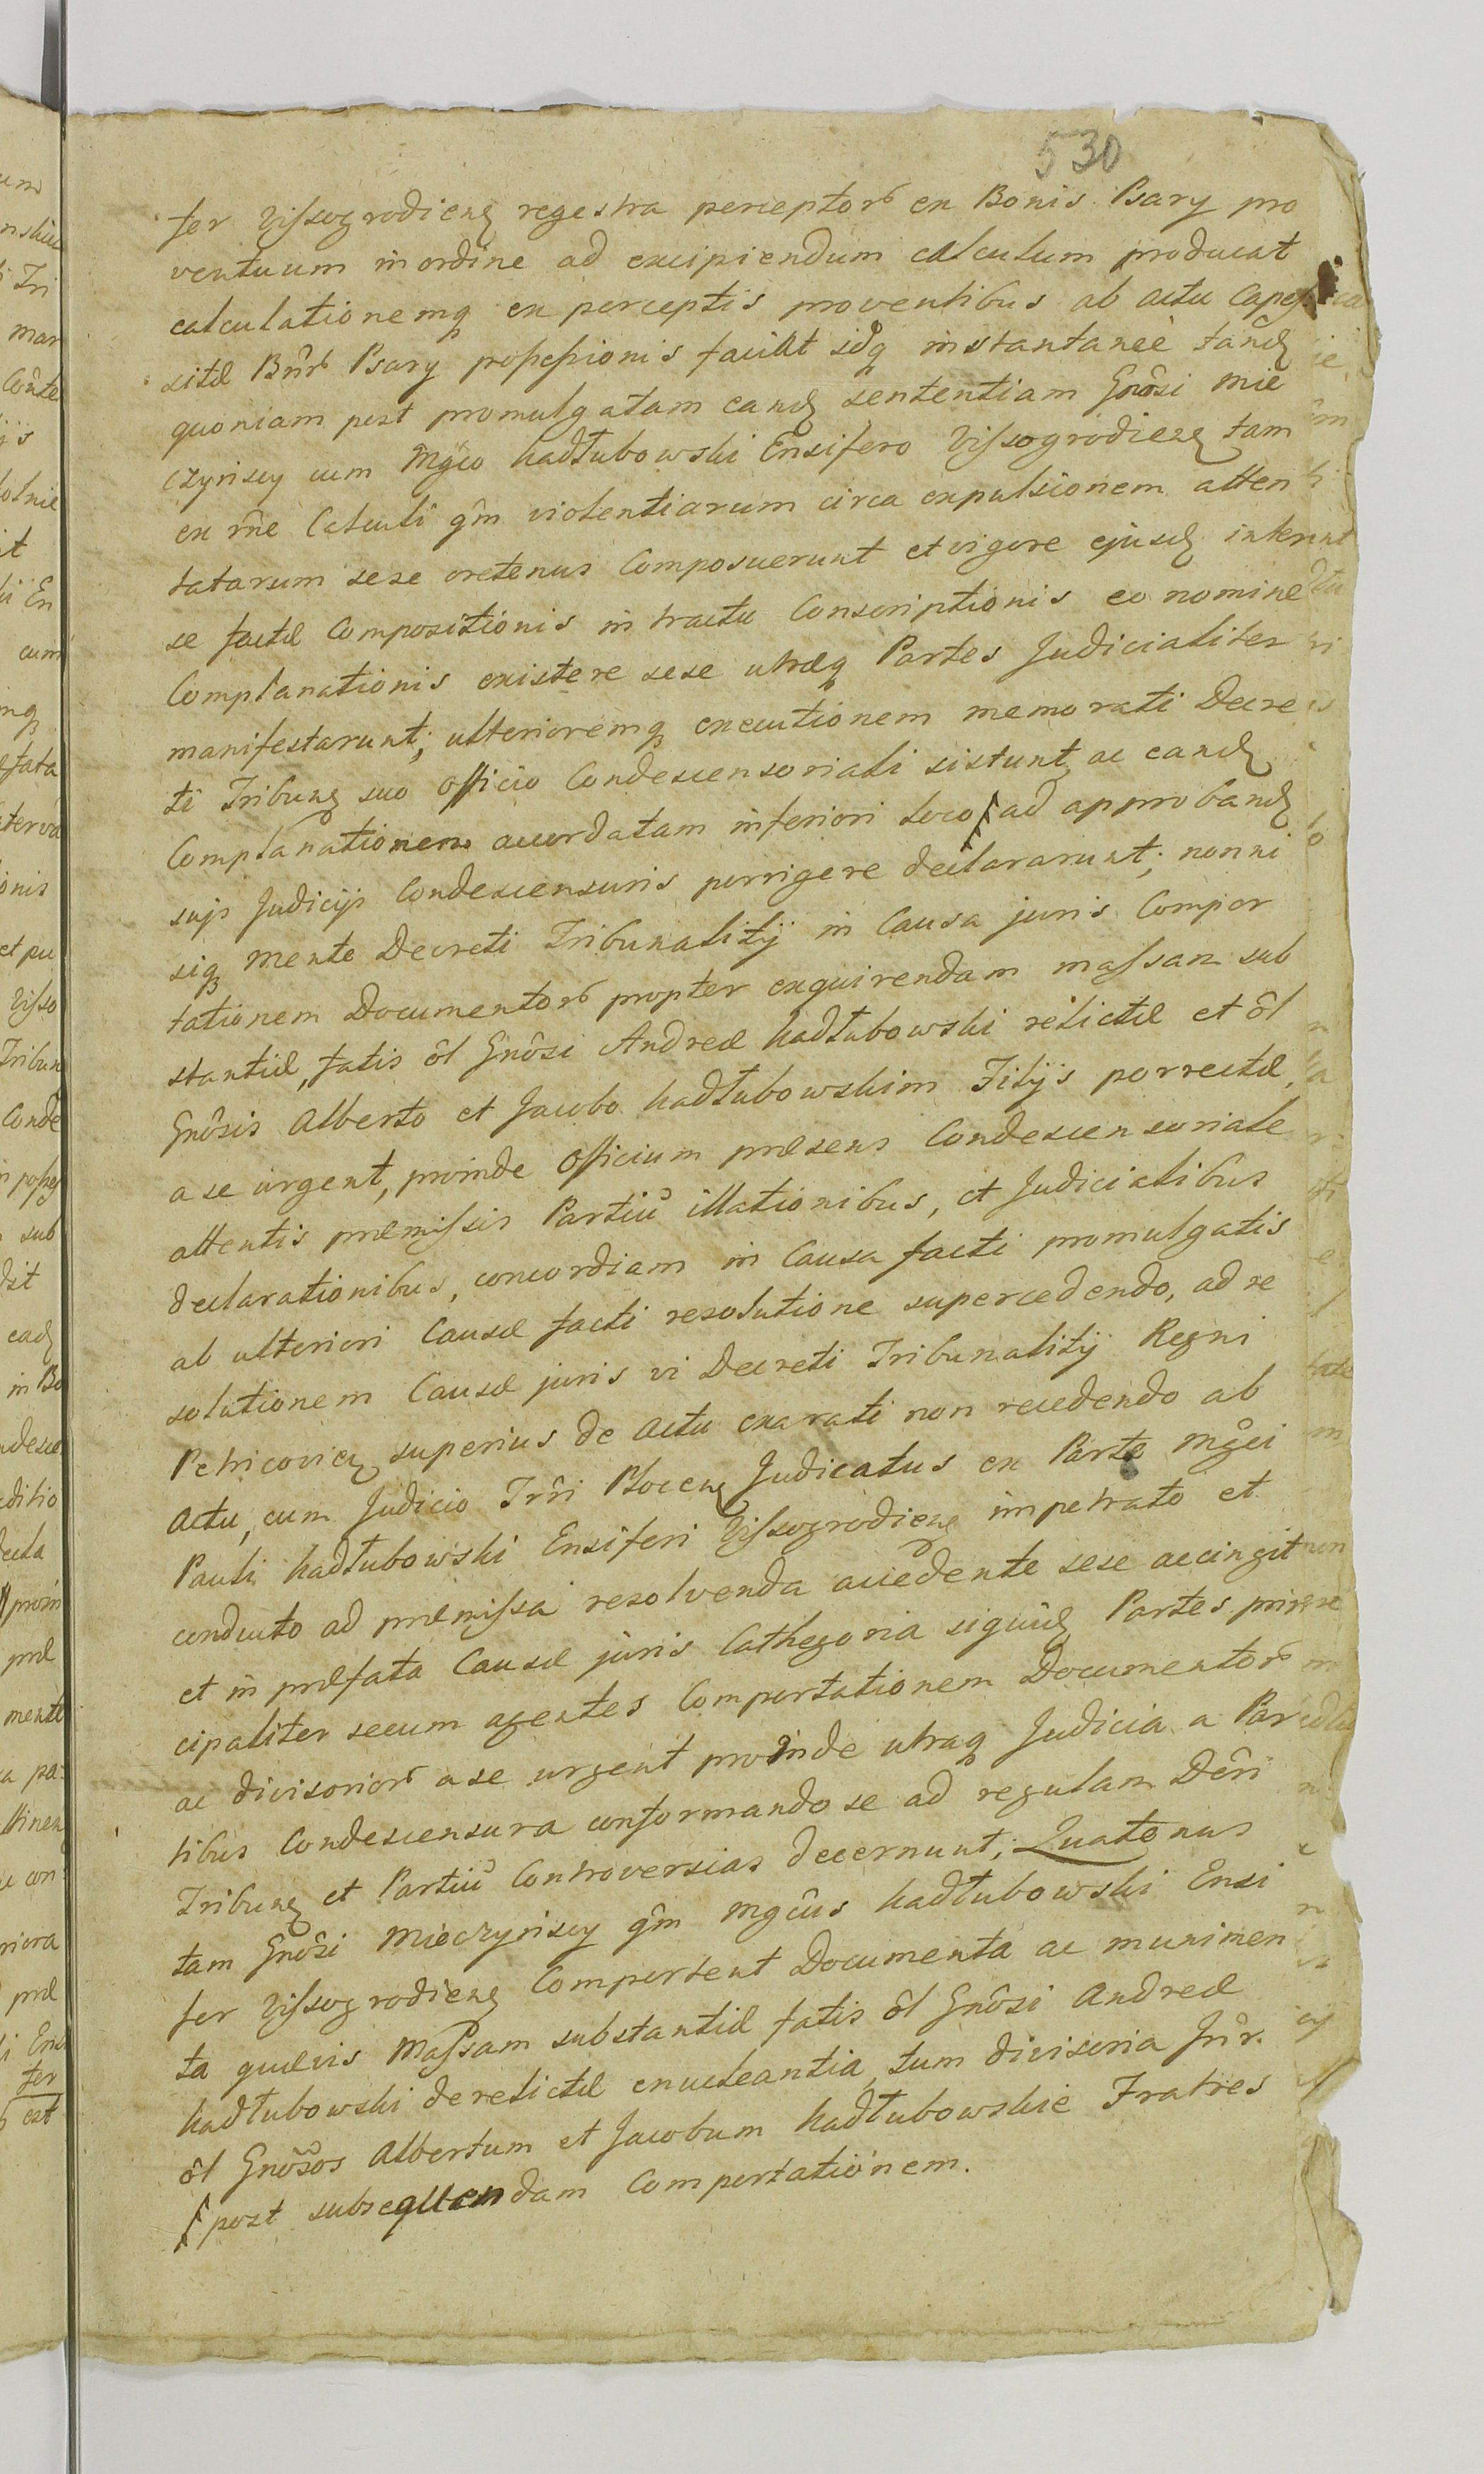 530
fer Vissogrodienꝫ regestra perceptorꝫ ex Bonis Psary pro
ventuum in ordine ad excipiendum calculum producat
calculationemqꝫ ex perceptis proventibus ab actu Capes
sitæ Bnrꝫ Psary possessionis faciat idqꝫ instantaneè tandꝫ
quoniam post promulgatam eandꝫ sententiam Gnôsi Mie
czynscy cum Mgco hadłubowski Ensifero Vissogrodienꝫ tam
ex rne Calculi qm̂ violentiarum circa expulsionem atten
tatarum sese oretenus Composuerunt et vigore ejusdꝫ inter
se factæ Compositionis in tractu Conscriptionis eo nomine
Complanationis existere sese utræqꝫ Partes Judicialiter
manifestarunt; ulterioremqꝫ executionem memorati Decre
ti Tribunꝫ suo officio Condescensoriali sistunt, ac eandꝫ
Complanationem accordatam inferiori loco ſ ad approbandꝫ
suis Judicijs Condescensuris porrigere declararunt; nonni
siqꝫ mente Decreti Tribunalitij in Causa juris Compor
tationem Documentorꝫ propter exquirendam massam sub
stantiæ, fatis ôl Gnôsi Andreæ hadłubowski relictæ et ôl
Gnôsis Alberto et Jacobo hadłubowskim Filijs porrectæ,
a se urgent, proinde officium præsens Condescensoriale
attentis præmissis Partiũ illationibus, et Judicialibus
declarationibus, concordiam in Causa facti promulgatis
ab ulteriori Causæ facti resolutione supercedendo, ad re
solutionem Causæ juris vi Decreti Tribunalitij Regni
Petricovienꝫ superius de actu exarati non recedendo ab
actu, cum Judicio Trri Plocenꝫ Judicatus ex Parte Mgci
Pauli hadłubowski Ensiferi Vissogrodienꝫ impetrato et
conducto ad præmissa resolvenda accedente sese accingit
et in præfata Causæ juris Cathegoria siquidꝫ Partes prin
cipaliter secum agentes Comportationem Documentorꝫ
ac divisoriorꝫ a se urgent proinde utraqꝫ Judicia a Par
tibus Condescensura conformando se ad regulam Dêri
Tribunꝫ et Partiũ Controversias decernunt; Quatenus
tam Gnôsi Mieczynscy qm̂ Mgĉus hadłubowski Ensi
fer Vissogrodienꝫ Comportent Documenta ac munimen
ta quævis Massam substantiæ fatis ôl Gnôsi Andreæ
hadłubowski derelictæ enucleantia, tum divisoria Intr.
ôl Gnôsos Albertum et Jacobum hadłubowskie Fratres
ſ post subsequendam Comportationem.